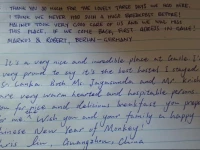 THANK YOU SO MUCH FOR THE LOVELY THREE DAYS WE HAD HERE.
I THINK WE NEVER HAD SUCH A HUGE BREAKFAST BEFORE!
TAKE VERY GOOD CARE OF US
THIS PLACE. IF WE COME BACK, FIRST ADRESS IN GALLE!
& ROBERT, BERLIN - GERMANY
It's a very nice and incredible place at Galle. I
very proud to say it's the best hostel I stayed
Sri Lanka. Both Mr. Jayananda and Mr.
are very warm hearted and hospitable persons.
for rice and delicious breakfast you prepare
for me. Wish you and your family a happy
Chinese New Year of "Monkey".
Lin, Guangzhou, China